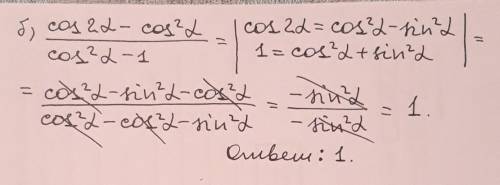 б) (cos2α - cos²α)/(cos²α - 1) = | cos2α = cos²α - sin²α
1 = cos²α + sin²α | =
= (cos²α - sin²α - cos²α)/(cos²α - cos²α - sin²α) = (-sin²α)/(-sin²α) = 1.
Ответ: 1.